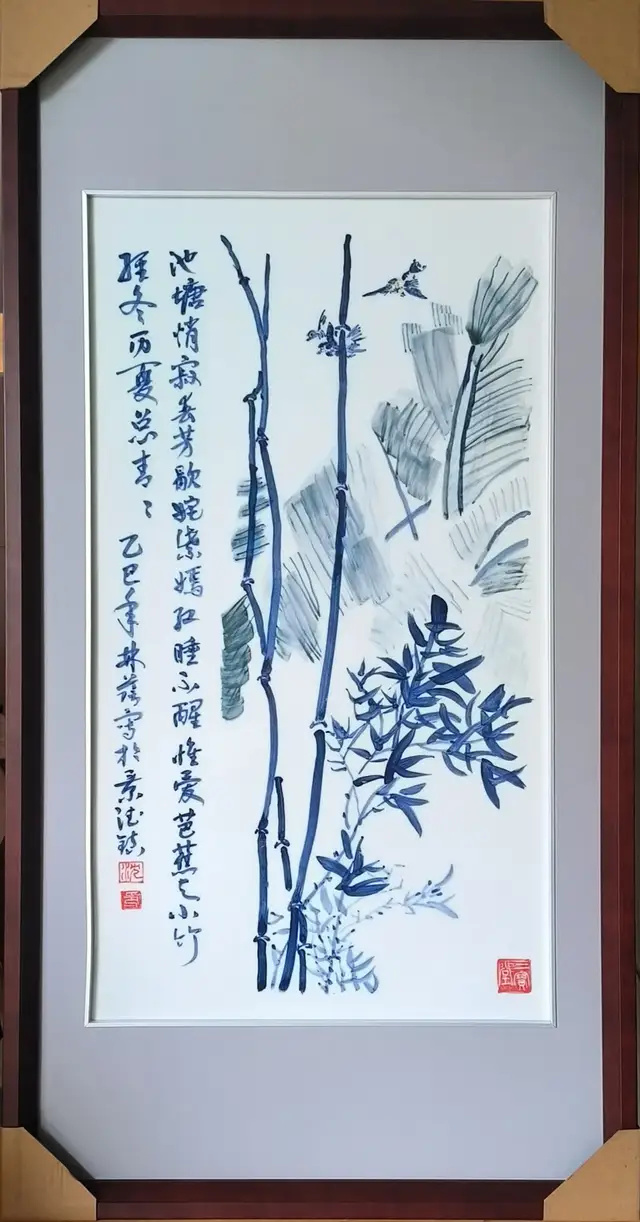 池塘悄寂众芳歇姹紫嫣红睡不醒惟爱芭蕉与小竹
经冬历夏总青〻 乙巳年林写於景德镇
沈
三寶堂